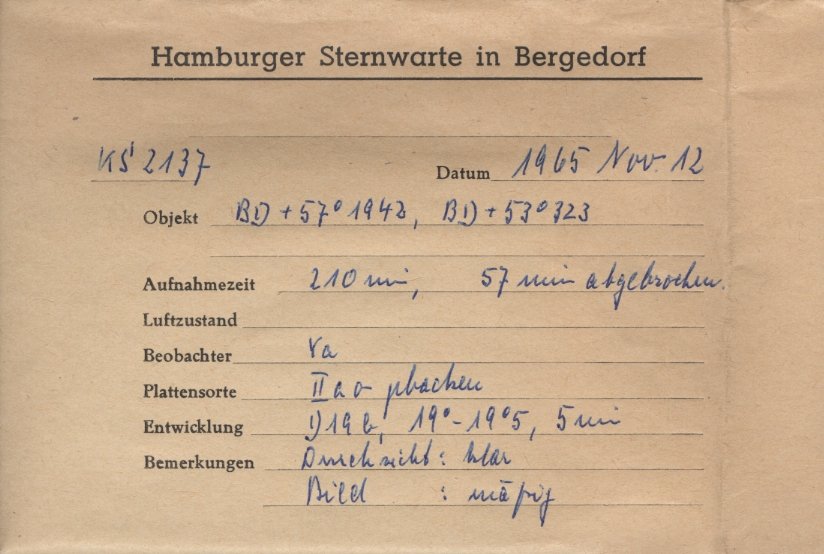 Hamburger Sternwarte in Bergedorf
KS 2137 Datum 1965 Nov. 12
Objekt BD +57° 1942, BD +53° 323
Aufnahmezeit 210 min, 57 min abgebrochen.
Luftzustand
Beobachter Va
Plattensorte II a o gebacken
Entwicklung D19b, 19°-19°5, 5 min
Bemerkungen Durchsicht: klar
Bild : mäßig